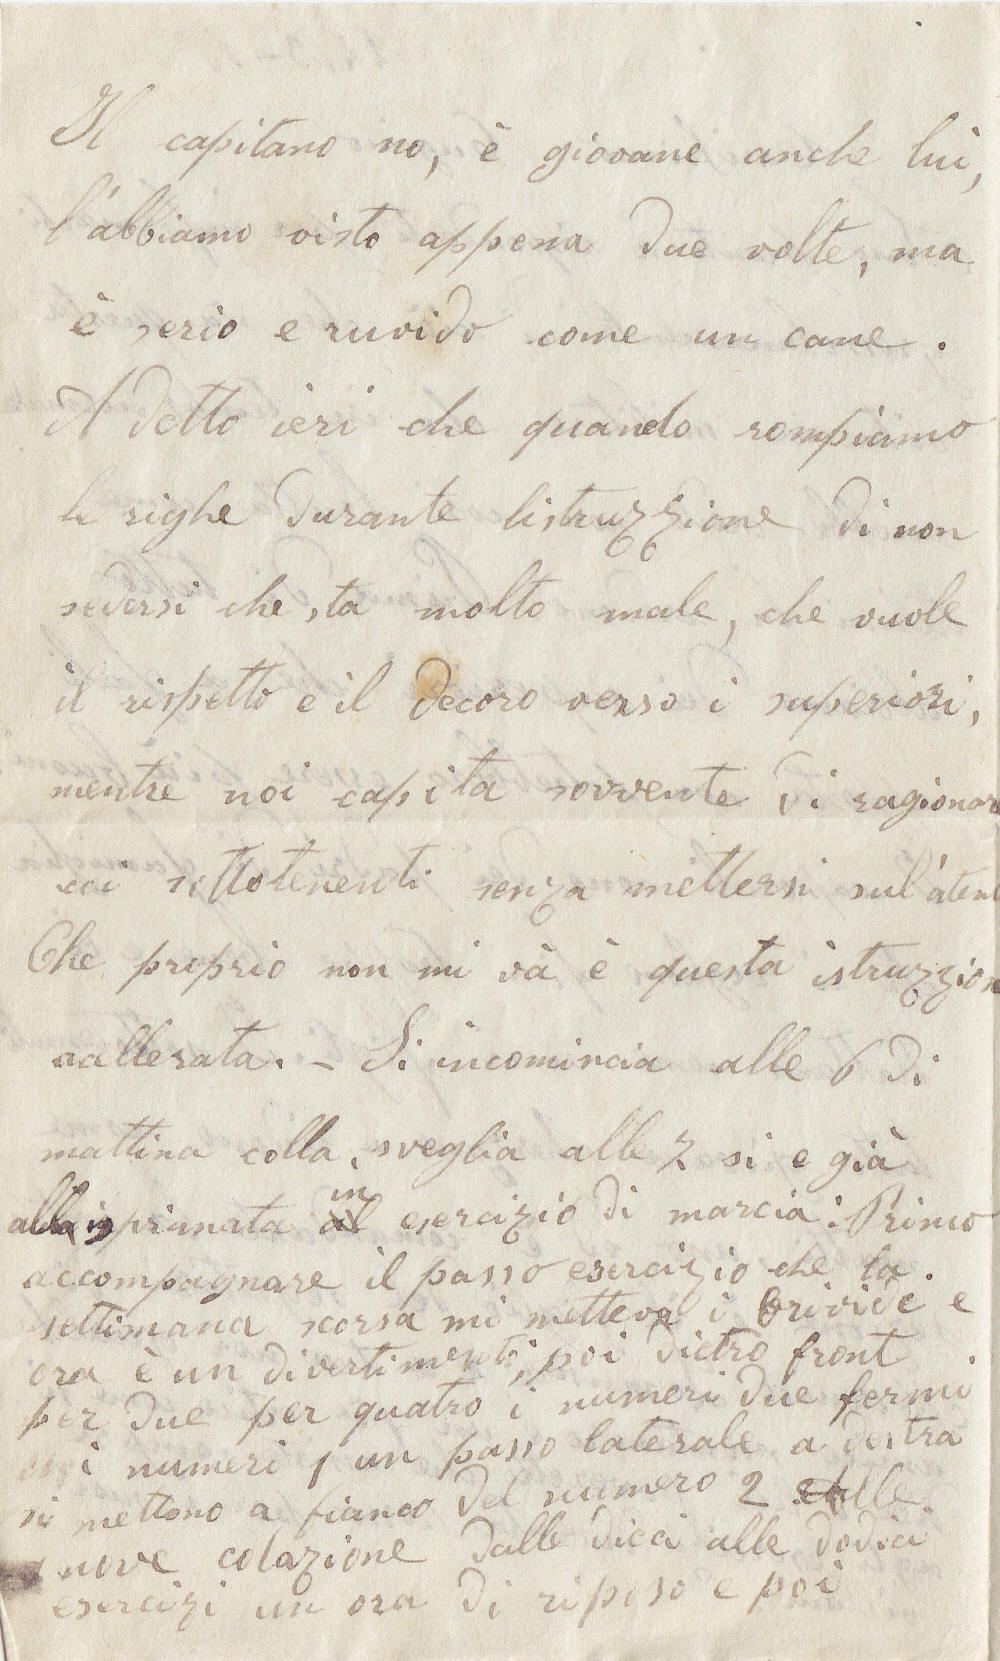 Il capitano no, è giovane anche lui,
l'abbiamo visto appena due volte, ma
è serio e ruvido come un cane.
A detto ieri che quando rompiamo
le righe durante listruzzione di non
sedersi che sta molto male, che vuole
il rispetto e il decoro verso i superiori,
mentre noi capita sovvente di ragionare
coi sottotenenti senza mettersi sul'atent
Che proprio non mi và è questa istruzzion
accellerata. – Si incomincia alle 6 di
mattina colla sveglia alle 7 si e già
alla inprimata in esercizio di marcia: Primo
accompagnare il passo esercizio che la
settimana scorsa mi metteva i brividi e
ora è un divertimento, poi dietro front
per due per quatro i numeri due fermi
i numeri 1 un passo laterale a destra
si mettono a fianco del numero 2 alle
nove colazione dalle dieci alle dodici
esercizi un ora di riposo e poi